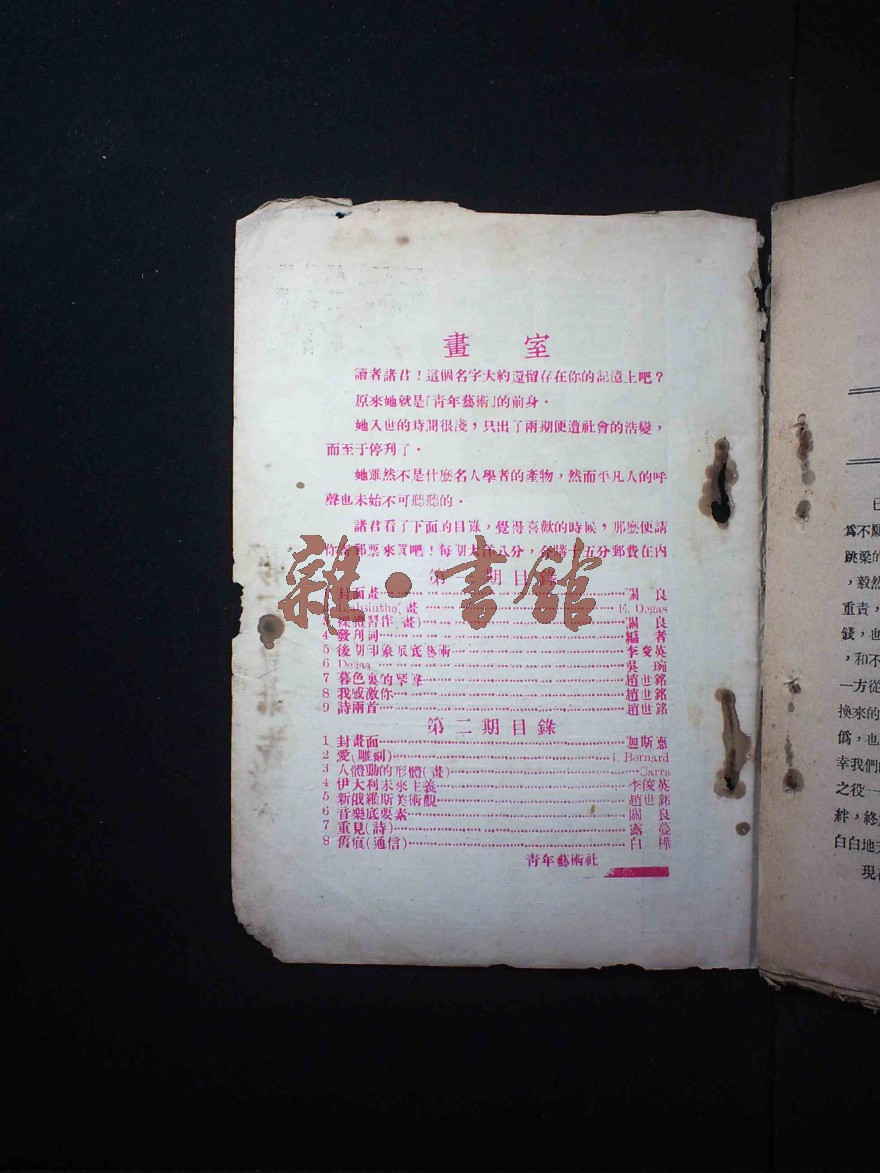 畫 室
讀者諸君！這個名字大約還留存在你的記憶上吧？
原來她就是「靑年藝術」的前身．
她入世的時間很淺，只出了兩期便遭社會的浩變，
而至于停刋了．
她雖然不是什麽名人學者的產物，然而平凡人的呼
聲也未始不可聽聽的．
諸君看了下面的目錄，覺得喜歡的時候，那麽便請
你寄郵票來買吧！每期大洋八分，合購十五分郵費在內
第一期目錄
封面畫 關 良
L'absinthe(畫 E. Degas
裸體習作(畫) 關 良
4 發刋詞 編 者
5 後期印象展底藝術 李俊英
6 Degas 吳 琬
7 暮色裏的琴聲 趙世銘
8 我感激你 趙世銘
9 詩兩首 趙世銘
第二期目錄
1 封畫面 斯
2 愛(雕刻) Bernard
3 人體動的形體(畫) Carra
4 伊大利未來主義 李俊英
5 新俄羅斯美術觀 趙世銘
6 音樂底要素 關 良
7 重見(詩) 露 蔓
8 舊痕(通信) 白 樺
靑年藝術社
雜·書館
爲不願
跳梁的
，毅然
重責，
錢，也
，和不
一方從
換來的
僞，也
幸我們
之役一
絆，終
白白地
現